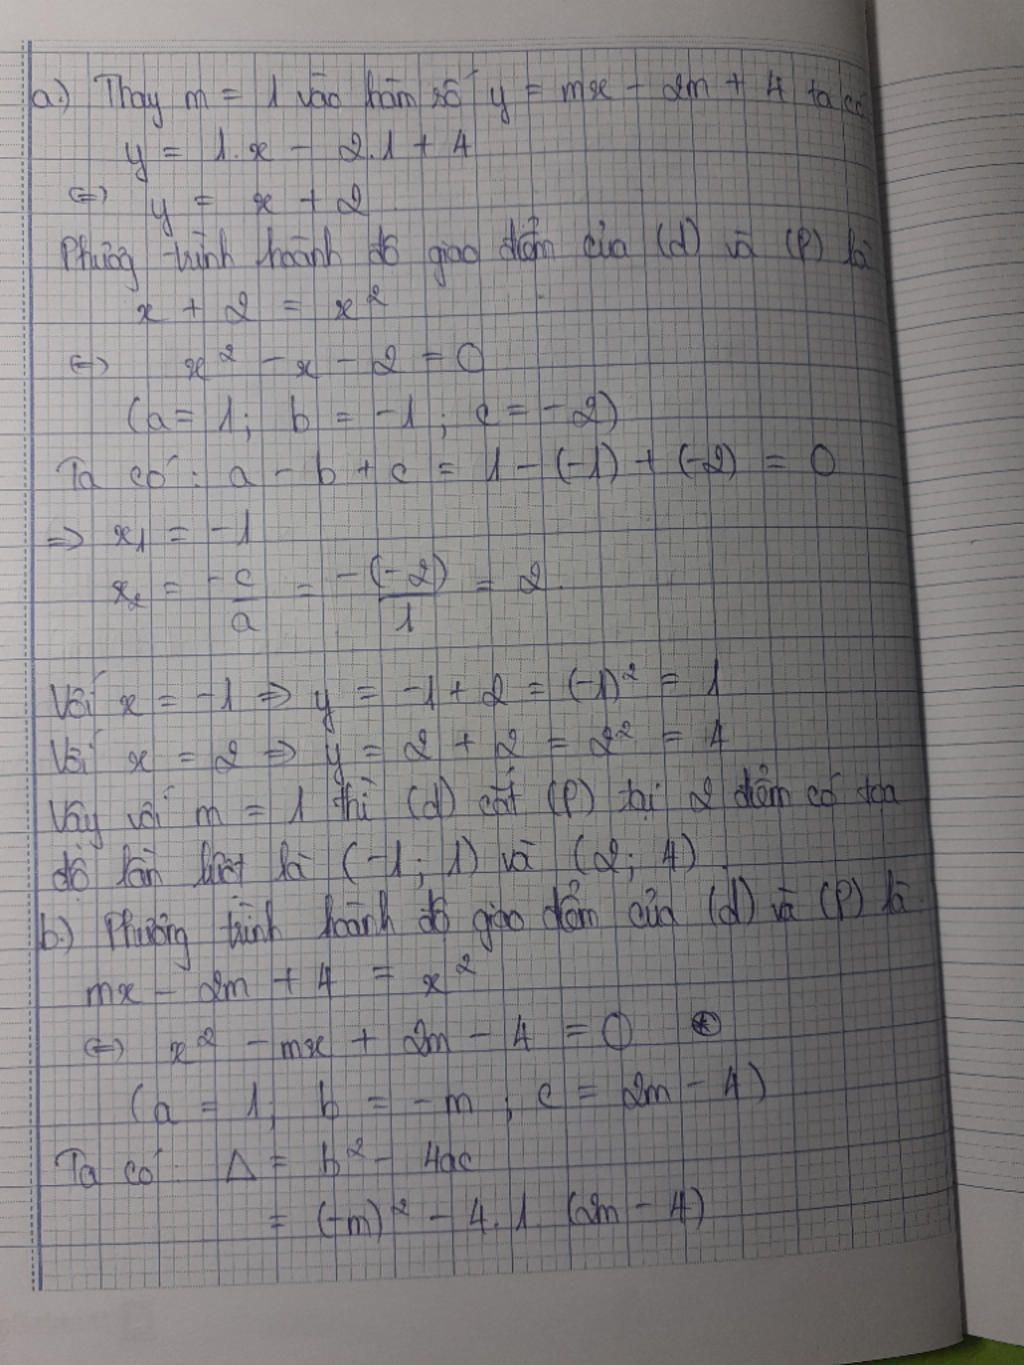 a.) Thay m = 1 vào hàm số y = mx - 2m + 4 ta có
y = 1.x - 2.1 + 4
⇔ y = x + 2
Phương trình hoành độ giao điểm của (d) và (P) là
x + 2 = x²
⇔ x² - x - 2 = 0
(a = 1; b = -1; c = -2)
Ta có: a - b + c = 1 - (-1) + (-2) = 0
⇒ x₁ = -1
x₂ = -c/a = -(-2)/1 = 2
Với x = -1 ⇒ y = -1 + 2 = (-1)² = 1
Với x = 2 ⇒ y = 2 + 2 = 2² = 4
Vậy với m = 1 thì (d) cắt (P) tại 2 điểm có tọa
độ lần lượt là (-1; 1) và (2; 4)
b.) Phương trình hoành độ giao điểm của (d) và (P) là
mx - 2m + 4 = x²
⇔ x² - mx + 2m - 4 = 0 (*)
(a = 1; b = -m; c = 2m - 4)
Ta có: Δ = b² - 4ac
= (-m)² - 4.1.(2m - 4)